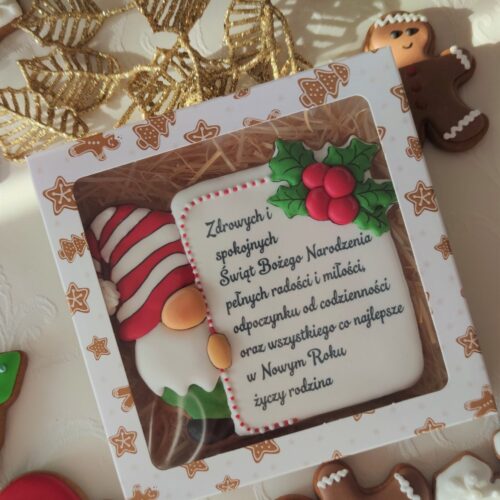 Zdrowych i
spokojnych
Świąt Bożego Narodzenia
pełnych radości i miłości,
odpoczynku od codzienności
oraz wszystkiego co najlepsze
w Nowym Roku
życzy rodzina